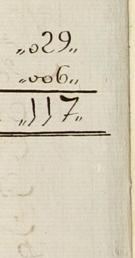 „029„
„006„
„117„